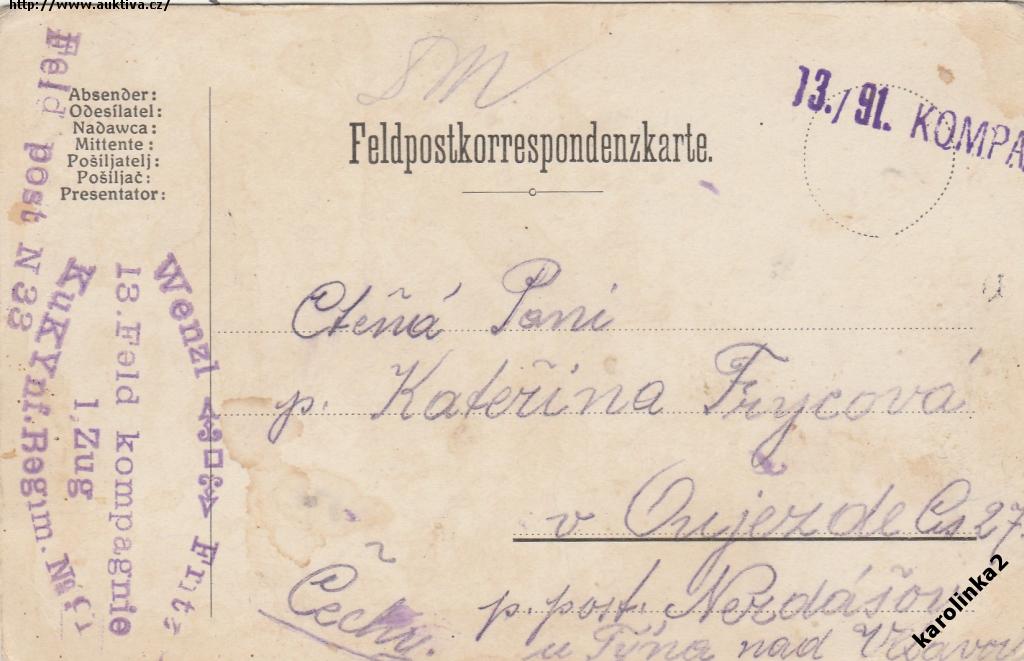 http://www.auktiva.cz/
SM.
13./91. KOMPA
Absender:
Odesílatel:
Nadawca:
Mittente:
Pošiljatelj:
Pošiljač:
Presentator:
Feldpostkorrespondenzkarte.
Wenzl Frit
13. Feld kompagnie
1. Zug
KuK Ynf. Regim. N
Feld post N 33
Ctěná Paní
p. Kateřina Frycová
v Oujezde Čs 27
p. post. Nezdášov
u Týna nad Vltavou
Čechy.
karolinka2